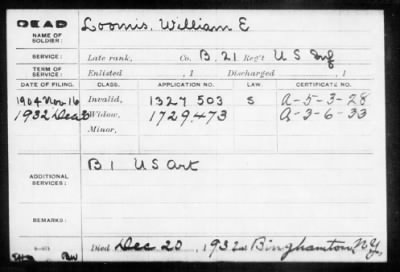 DEAD
NAME OF SOLDIER: Loomis, William E
SERVICE: Late rank, Co. B, 21 Reg't U S Inf
TERM OF SERVICE: Enlisted , 1 Discharged , 1
DATE OF FILING. CLASS. APPLICATION NO. LAW. CERTIFICATE NO.
1904 Nov 16 Invalid, 1327 503 S A-5-3-28
1932 Dec Widow, 1729473 A-3-6-33
Minor,
ADDITIONAL SERVICES: B 1 US Art
REMARKS:
Died Dec 20, 1932 at Binghamton, N.Y.